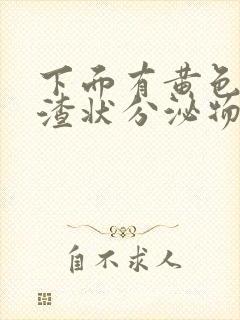 下而有黄色
渣状分泌物
自不求人